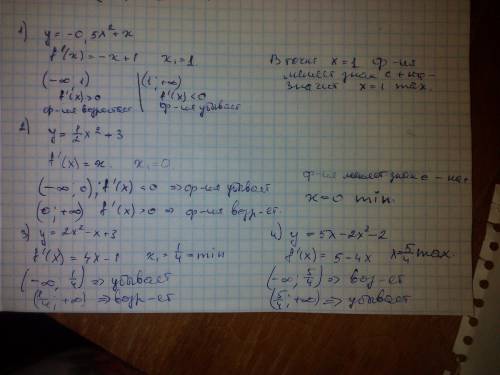 1) y = -0,5x² + x
f'(x) = -x+1   x₁ = 1
(-∞; 1)   (1; +∞)
f'(x) > 0   f'(x) < 0
ф-ия возрастает   ф-ия убывает
В точке x = 1 ф-ия
меняет знак с + на -
значит x = 1 max.
2) y = 1/2 x² + 3
f'(x) = x.   x₁ = 0
(-∞; 0), f'(x) < 0 ⇒ ф-ия убывает
(0; +∞) f'(x) > 0 ⇒ ф-ия возр-ет.
ф-ия меняет знак с - на +
x = 0 min.
3) y = 2x² - x + 3
f'(x) = 4x - 1   x₁ = 1/4 = min
(-∞; 1/4) ⇒ убывает
(1/4; +∞) ⇒ возр-ет
4) y = 5x - 2x² - 2
f'(x) = 5 - 4x   x = 5/4 max.
(-∞; 5/4) ⇒ воз-ет
(5/4; +∞) ⇒ убывает